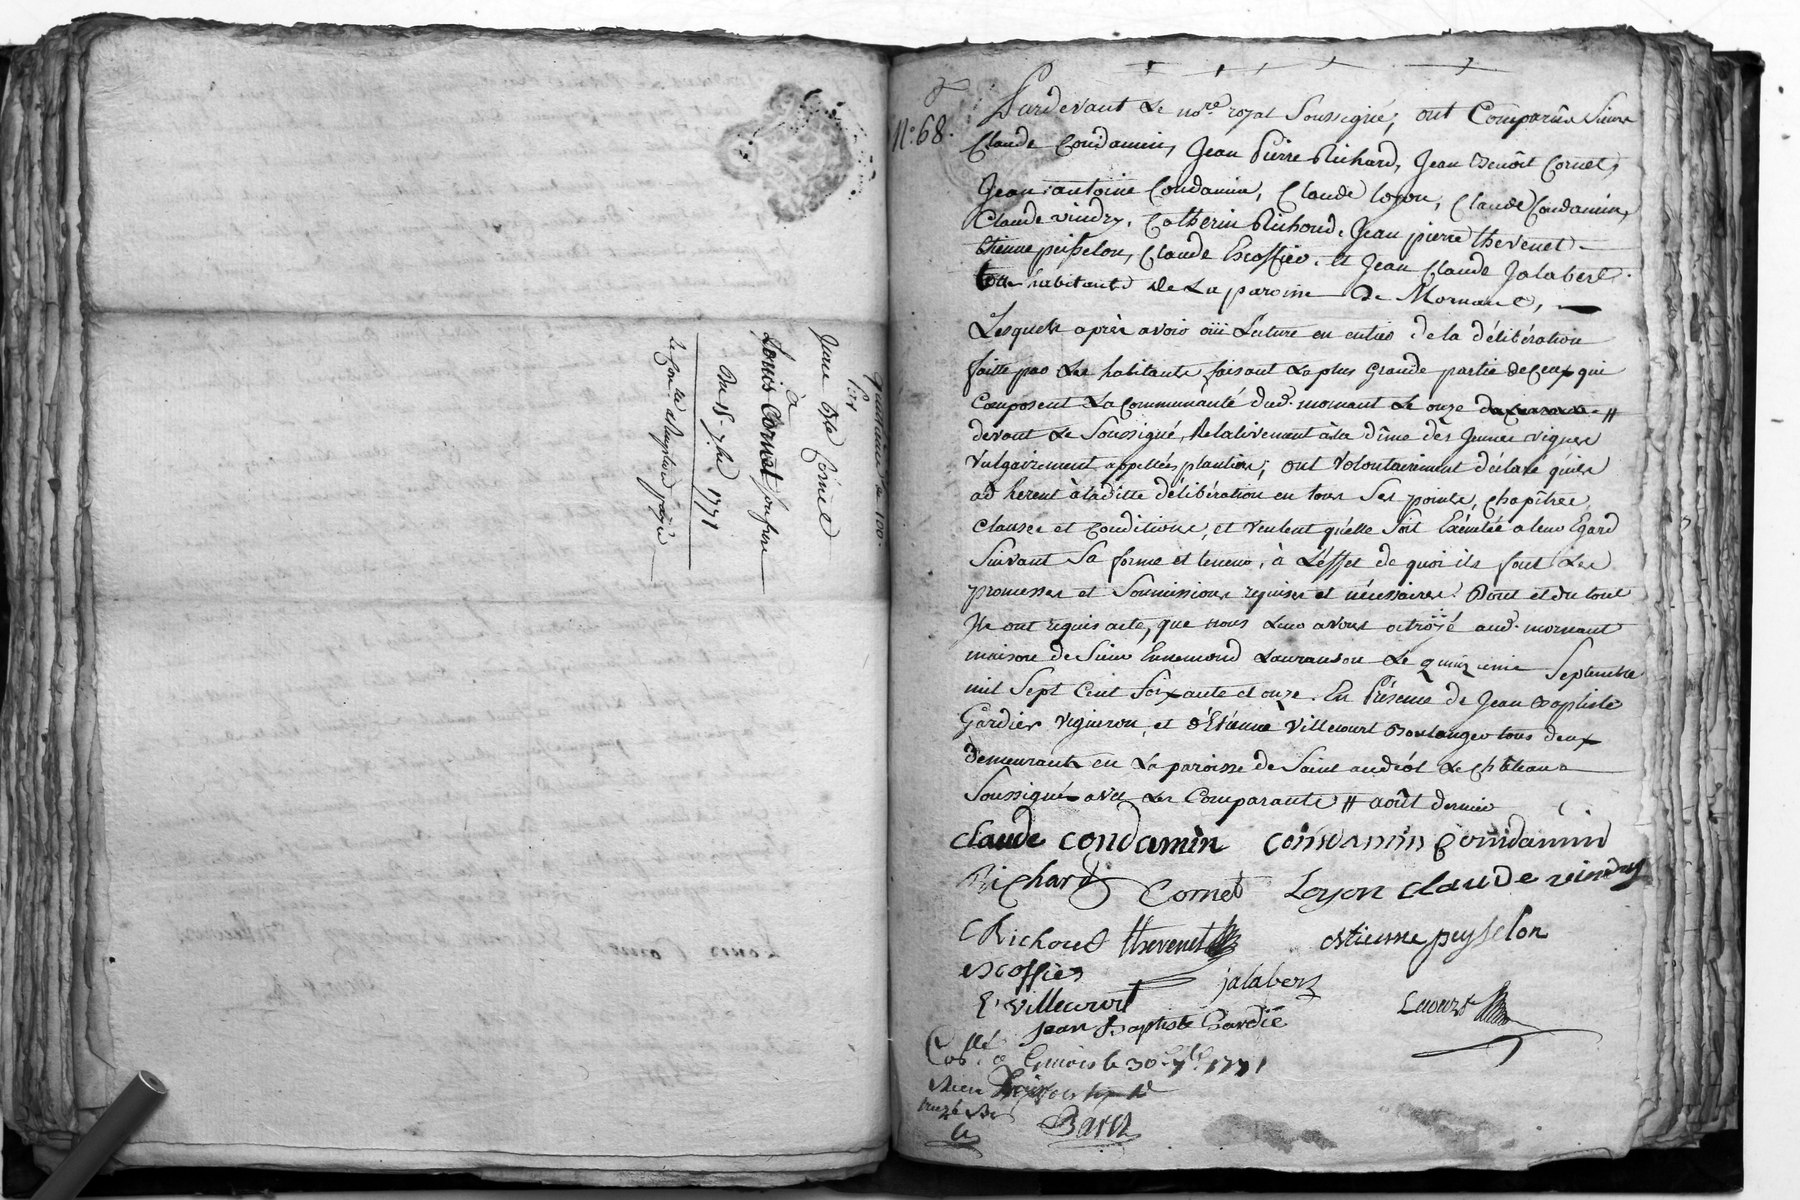 quittance de 100.
Jean Bte Cornet
à
Louis Cornet son frere
Du 15. 7.bre 1771
N.o 68.
Pardevant Le no.re royal Soussigné, ont Comparûs Sieurs
Claude Condamin, Jean Pierre Richard, Jean Benoît Cornet,
Jean antoine Condamin, Claude loyon, Claude Condamin,
Claude vindry, Catherin Richoud, Jean pierre thevenet
Etienne peisselon, Claude Escoffier, et Jean Claude Jalabert
tous habitants de La paroisse de Mornant,
Lesquels après avoir oüi Lecture en entier de la délibération
faitte par Les habitants faisant La plus Grande partie de Ceux qui
Composent La Communauté dud. mornant Le onze #
devant Le Soussigné, Relativement à la dîme dès Jeunes vignes
vulgairement appellées plantiers, ont volontairement déclaré qu'ils
adherent à laditte délibération en tous Ses points, chapîtres,
Clauses et Conditions, et veulent qu'elle Soit Exécutée a leur Egard
Suivant Sa forme et teneur, à L'éffet de quoi ils font Les
promesses et Soumissions requises et nécessaires. Dont et du tout
Ils ont requis acte, que nous Leur avons octroïé aud. mornant
maison de Sieur Ennemond Lauranson Le quinzieme Septembre
mil Sept Cent Soixante et onze. En Présence de Jean Baptiste
Gardier vigneron, et d'Etienne Villecourt Boulanger tous deux
demeurants en La paroisse de Saint andéol Le château
Soussignés avec Les Comparants # août dernier
claude condamin condamin Condamin
Richard Cornet Loyon claude vindry
C Richoud thevenet estienne peysselon
escoffier jalabert
E. villecourt
jean Baptiste Gardié
Con.llé a Givors le 30. 7.bre 1771
Barz